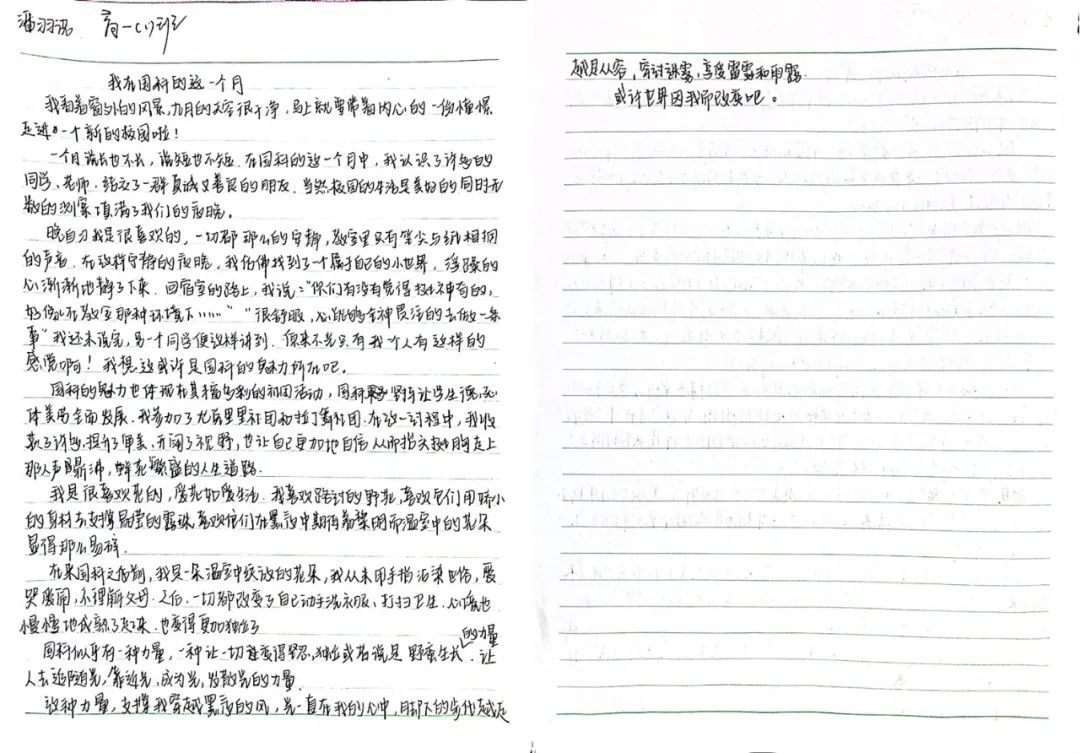 潘羽 高一(1)班
我在国科的这一个月
我看着窗外的风景,九月的天空很干净,马上就要带着内心的一份憧憬
走进一个新的校园啦!
一个月说长也不长,说短也不短.在国科的这一个月中,我认识了许多的
同学、老师.结交了一群真诚又善良的朋友.当然校园的生活是美好的同时无
数的测案填满了我们的夜晚。
晚自习我是很喜欢的,一切都那么的安静,教室里只有笔尖与纸相拥
的声音.在这样宁静的夜晚,我仿佛找到了一个属于自己的小世界,浮躁的
心渐渐地静了下来.回宿舍的路上,我说:"你们有没有觉得挺神奇的,
好像在教室那种环境下……""很舒服,心能够全神贯注的去做一条
事"我还未说完,另一个同学便这样讲到.原来不光只有我个人有这样的
感觉啊!我想这或许是国科的魅力所在吧。
国科的魅力也体现在其丰富多彩的社团活动,国科坚持让学生德智
体美劳全面发展.我参加了尤克里里社团和拉丁舞社团.在这一过程中,我收
获了许多,提升了审美、开阔了视野,也让自己更加地自信从而抬头挺胸走上
那人声鼎沸,鲜花繁盛的人生道路.
我是很喜欢花的,爱花如爱生活.我喜欢路过的野花,喜欢它们用娇小
的身材去支撑晶莹的露珠,喜欢他们在黑夜中期待着黎明而温室中的花朵
显得那么易碎.
在来国科之前,我是一朵温室中绽放的花朵,我从未用手指沾染世俗,爱
哭爱闹,不理解父母.之后.一切都改变了自己动手洗衣服、打扫卫生.心境也
慢慢地成熟了起来.也变得更加独立了
的力量
国科似乎有一种力量,一种让一切都变得坚韧、独立或者说是野蛮生长.让
人去追随光,靠近光,成为光,发散光的力量.
这种力量,支撑我穿越黑夜的风,光一直在我的心中,脚下的步伐越走
越是从容,穿过迷雾,享受雷雾和雨露.
或许世界因我而改变吧。